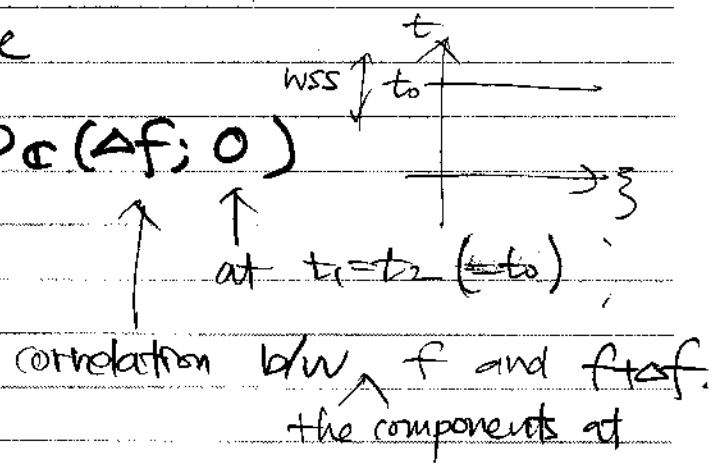 t
WSS t₀
c(Δf; 0)
ξ
at t₁=t₂ (=t₀)
correlation b/w f and f+Δf.
the components at